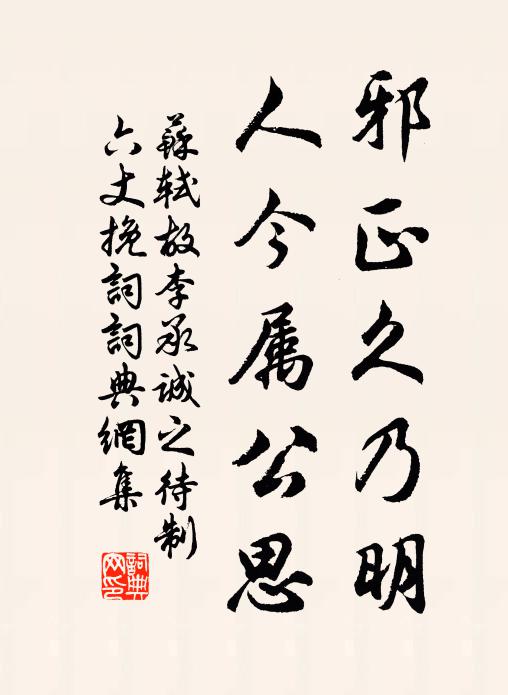 邪正久乃明
人今属公思
蘇軾故李承誠之待制
六丈挽詞詞典網集
詞典網印